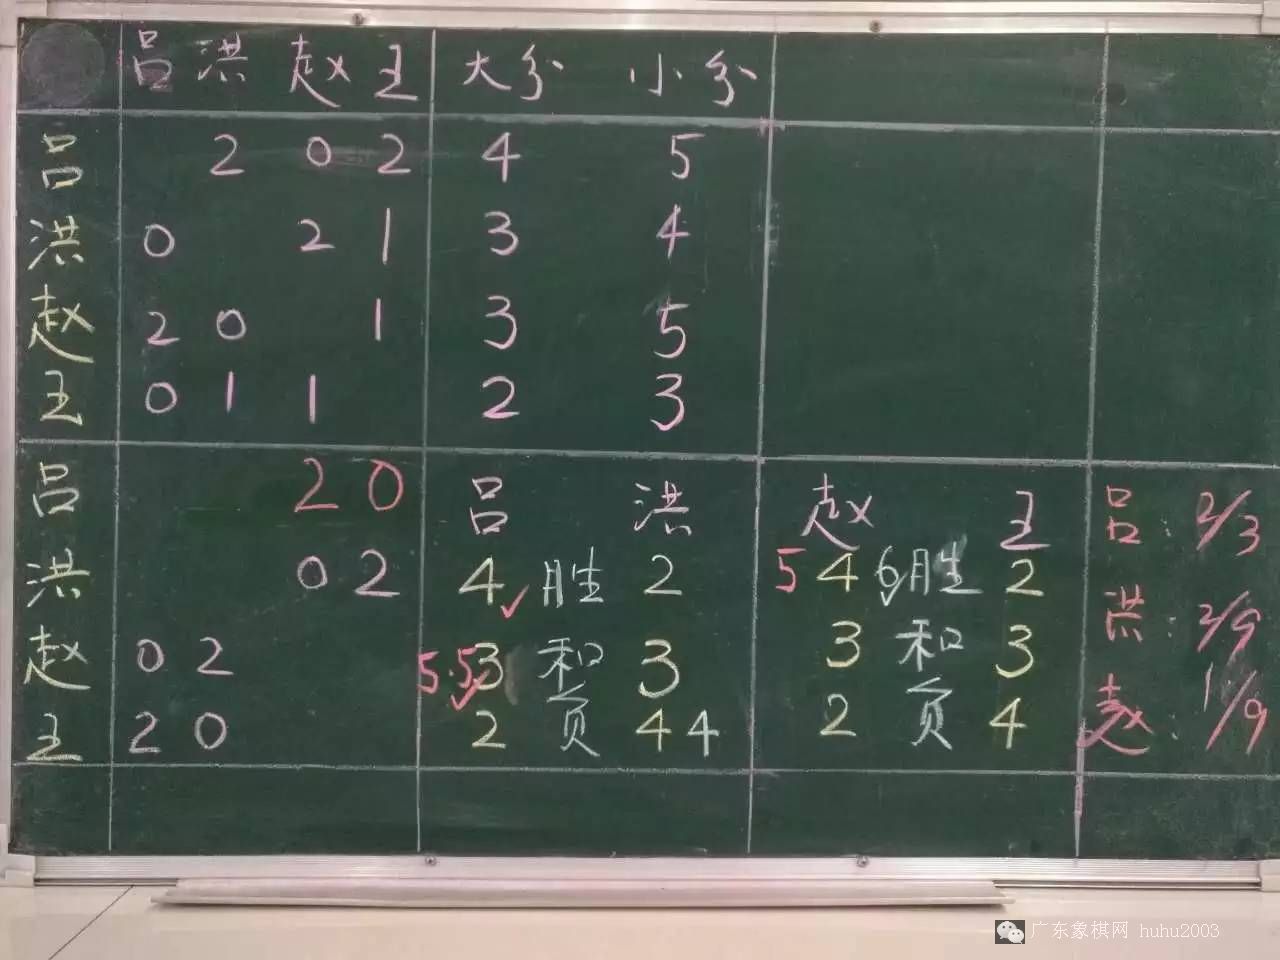 吕 洪 赵 王 大分 小分
吕 2 0 2 4 5
洪 0 2 1 3 4
赵 2 0 1 3 5
王 0 1 1 2 3
吕 2 0 吕 洪 赵 王 吕: 2/3
洪 0 2 4 胜 2 5 4 6 胜 2 洪: 2/9
赵 0 2 5.5 3 和 3 3 和 3 赵: 1/9
王 2 0 2 负 4 4 2 负 4
广东象棋网 huhu2003